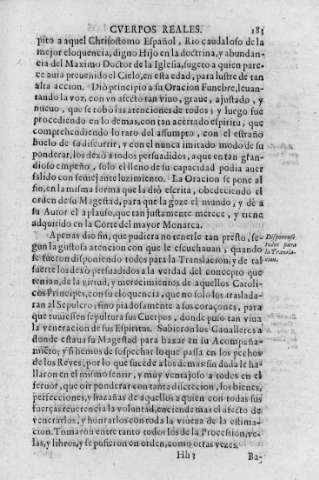 CVERPOS REALES. 183
pito a aquel Chrisostomo Español, Rio caudaloso de la
mejor eloquencia, digno Hijo en la doctrina, y abundan-
cia del Maximo Doctor de la Iglesia, sugeto a quien pare-
ce auia preuenido el Cielo, en esta edad, para lustre de tan
alta accion. Diò principio a su Oracion Funebre, leuan-
tando la voz, con vn afecto tan viuo, graue, ajustado, y
nueuo, que se robò las atenciones de todos; y luego fue
procediendo en lo demas, con tan acertado espiritu, que
comprehendiendo lo raro del assumpto, con el estraño
buelo de su discurrir, y con el nunca imitado modo de su
ponderar, los dexò a todos persuadidos, a que en tan gran-
dioso empeño, solo el lleno de su capacidad podia auer
salido con semejante luzimiento. La Oracion se pone al
fin, en la misma forma que la diò escrita, obedeciendo el
orden de su Magestad, para que la goze el mundo, y dè a
su Autor el aplauso, que tan justamente merece, y tiene
adquirido en la Corte del mayor Monarca.
Apenas dio fin, que pudiera no tenerle tan presto, se-
gun la gustosa atencion con que le escuchauan, quando
se fueron disponiendo todos para la Translacion; y de tal
suerte los dexò persuadidos a la verdad del concepto que
tenian, de la virtud, y merecimientos de aquellos Catoli-
cos Principes, con su eloquencia, que no solo los traslada-
ron al Sepulcro, sino piadosamente a sus coraçones, para
que tuuiessen sepultura sus Cuerpos, donde puso tan viua
la veneracion de sus Espiritus. Subieron los Caualleros a
donde estaua su Magestad para baxar en su Acompaña-
miento; y si hemos de sospechar lo que passa en los pechos
de los Reyes, por lo que sucede a los demas, sin duda le ha-
llaron en el mismo sentir, y muy ventajoso a todos en el
feruor, que oir ponderar con tanta discrecion, los bienes,
perfecciones, y hazañas de aquellos a quien con todas sus
fuerças reuerencia la voluntad, enciende mas el afecto de
venerarlos, y honrarlos con toda la viueza de la estima-
cion. Tomaron entre tanto todos los de la Procession, ve-
las, y libros, y se pusieron en orden, como otras vezes.
Disponense
todos para
la Transla-
cion.
Hh3 Ba-